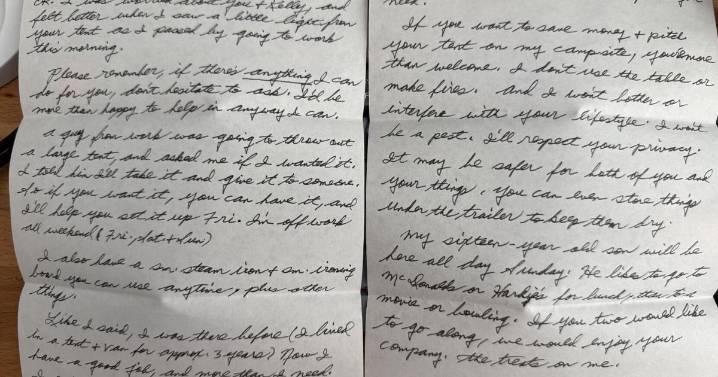 ok. I was worried about you & Kelly, and
felt better when I saw a little light from
your tent as I passed by going to work
this morning.
Please remember, if there's anything I can
do for you, dont hesitate to ask. I'd be
more than happy to help in anyway I can.
A guy from work was going to throw out
a large tent, and asked me if I wanted it.
I told him I'll take it and give it to someone.
So if you want it, you can have it, and
I'll help you set it up Fri. I'm off work
all weekend (Fri, Sat & Sun)
I also have a sm. steam iron & sm. ironing
board you can use anytime, plus other
things.
Like I said, I was there before (I lived
in a tent & van for approx. 3 years) Now I
have a good job, and more than I need.
need.
If you want to save money & pitch
your tent on my campsite, you're more
than welcome. I don't use the table or
make fires. And I won't bother or
interfere with your lifestyle. I won't
be a pest. I'll respect your privacy.
It may be safer for both of you and
your things. You can even store things
under the trailer to keep them dry.
My sixteen-year old son will be
here all day Sunday. He likes to go to
McDonalds or Hardy's for lunch, then to a
movie or bowling. If you two would like
to go along, we would enjoy your
company. The treats on me.